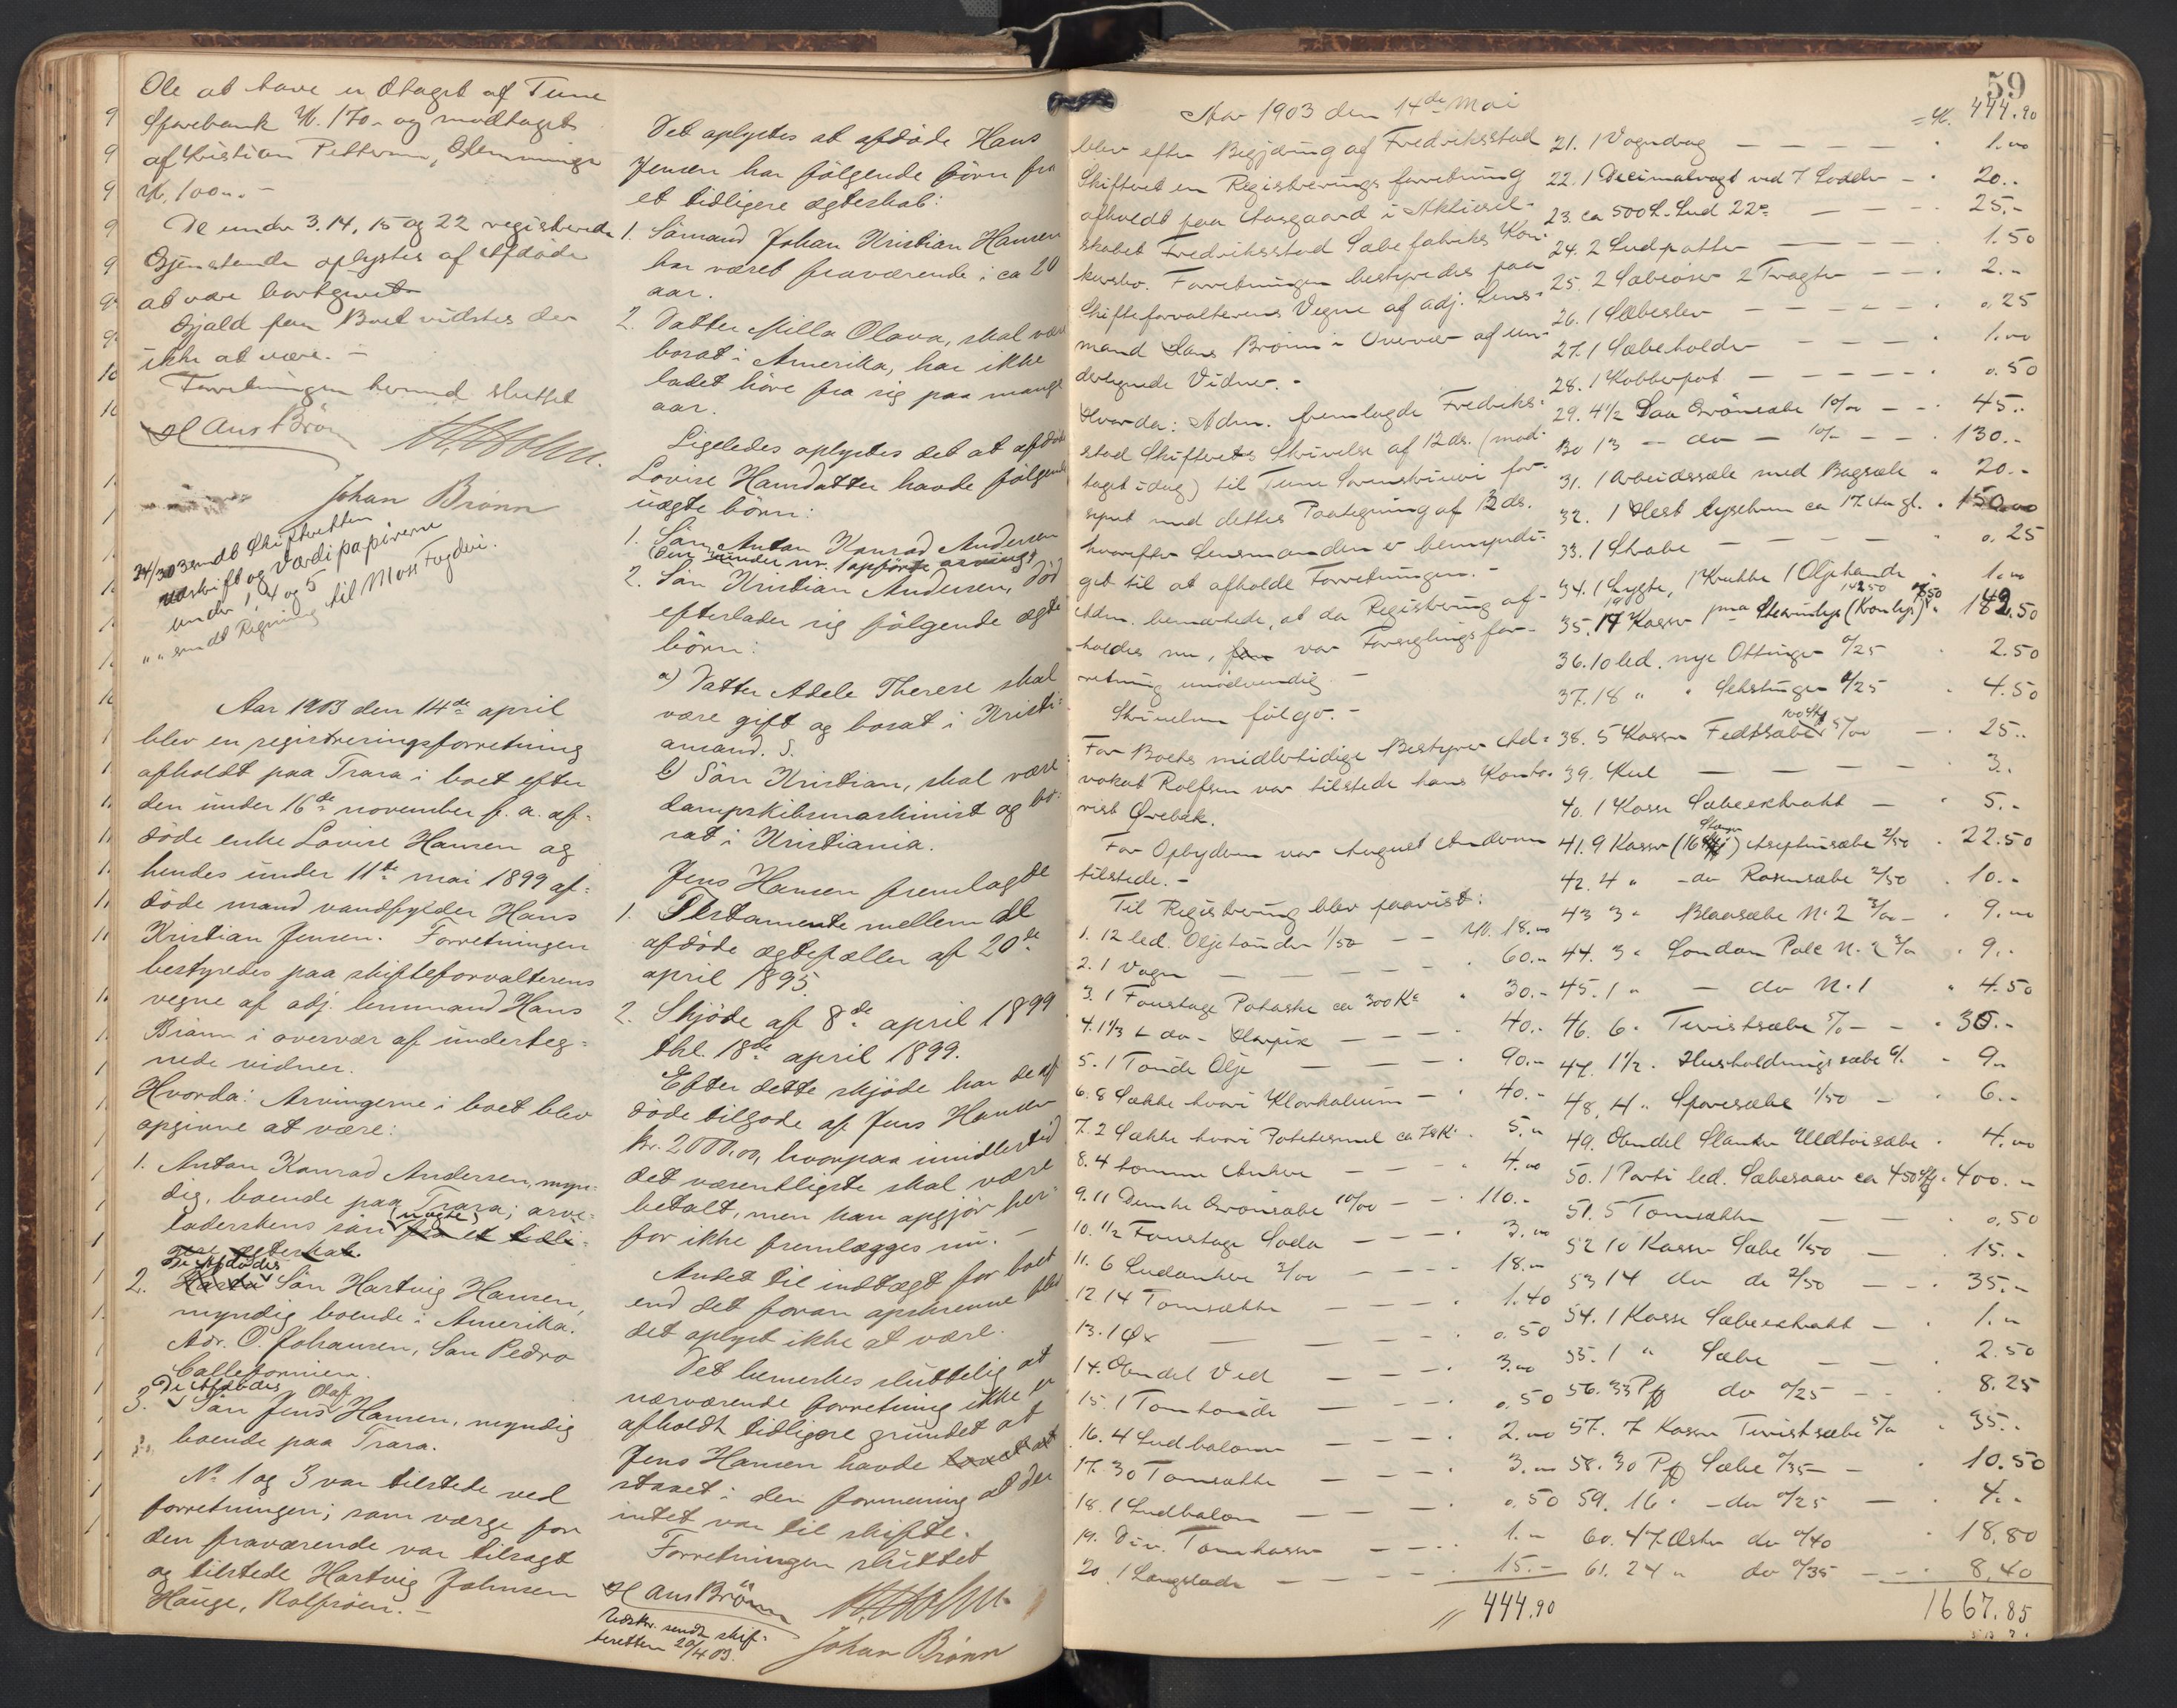 Ole at have udtaget af Tune
Sparebank Kr. 170.- og modtaget
af Kristian Pettersen, Glemminge
Kr. 100.-
De under 3. 14, 15 og 22 registrerede
Gjenstande oplystes af Afdøde
at være bortgivet
Gjæld paa Boet vidstes der
ikke at være. -
Forretningen hermed sluttet
Hans Brönn
Johan Brönn
24/3 03 sendt Skifteretten
Udskrift og Værdipapirerne
under 1, 4 og 5
" " sendt Regning til Moss Fogderi.
Aar 1903 den 14de april
blev en registreringsforretning
afholdt paa Trara i boet efter
den under 16de november f. a. af-
döde enke Lovise Hansen og
hendes under 11te mai 1899 af-
döde mand vandfylder Hans
Kristian Jensen. Forretningen
bestyredes paa skifteforvalterens
vegne af adj. lensmand Hans
Brönn i overvær af underteg-
nede vidner.
Hvorda: Arvingerne i boet blev
opgivne at være:
1. Anton Konrad Andersen, myn-
dig, boende paa Trara; arve-
laderskens sön (uægte) fra et tidli-
gere ægteskab.
2. De Afdödes Sön Hartvig Hansen,
myndig boende i Amerika.
Adr. O. Johansen, San Pedro
Calleformien.
3. De Afdödes Sön Jens Olaf Hansen, myndig
boende paa Trara.
No 1 og 3 var tilstede ved
forretningen; som værge for
den fraværende var tilsagt
og tilstede Hartvig Johnsen
Hauge, Rolfsöen. -
Det oplystes at afdöde Hans
Jensen har fölgende börn fra
et tidligere ægteskab:
1. Sömand Johan Kristian Hansen
har været fraværende i ca 20
aar.
2. Datter Milla Olava, skal være
bosat i Amerika, har ikke
ladet höre fra sig paa mange
aar.
Ligeledes oplystes det at afdöde
Lovise Hansdatter havde fölgende
uægte börn:
1. Sön Anton Konrad Andersen
(den under nr. 1 opförte arving)
2. Sön Kristian Andersen, död
efterlader sig fölgende ægte
börn:
a) Datter Adele Therese skal
være gift og bosat i Kristi-
ansand. S.
b) Sön Kristian, skal være
dampskibsmaskinist og bo-
sat i Kristiania.
Jens Hansen fremlagde
1. Testamente mellem de
afdöde ægtefæller af 20de
april 1895.
2. Skjöde af 8de april 1899
thl. 18de april 1899.
Efter dette skjöde har de af-
döde tilgode af Jens Hansen
kr. 2000.00, hvorpaa imidlertid
det væsentligste skal være
betalt, men han opgjör her-
for ikke fremlægges nu. -
Andet til indtægt for boet
end det foran opskrevne blev
det oplyst ikke at være.
Det bemerkes sluttelig at
nærværende forretning ikke er
afholdt tidligere grundet at
Jens Hansen havde
staaet i den formening at der
intet var til skifte.
Forretningen sluttet
Hans Brönn
Johan Brönn
Udskr. sendt skif-
teretten 20/4 03.
59
Aar 1903 den 14de Mai
blev efter Begjæring af Fredriksstad
Skifteret en Registreringsforretning
afholdt paa Aasgaard i Aktiesel-
skabet Fredriksstad Sæbefabriks Kon-
kursbo. Forretningen bestyredes paa
Skifteforvalterens Vegne af adj. Lens-
mand Hans Brönn i Overvær af un-
dertegnede Vidner. -
Hvorda: Adm. fremlagde Fredriks-
stad Skifterets Skrivelse af 12 ds. (mod-
taget idag) til Tune Sorenskriveri for-
synt med dettes Paategning af 13 ds.
hvorefter Lensmanden er bemyndi-
get til at afholde Forretningen. -
Adm. bemærkede, at da Registrering af-
holdes nu, var Forseglingsfor-
retning unödvendig. -
Skrivelsen fölger. -
For Boets midlertidige Bestyrer Ad-
vokat Rolfsen var tilstede hans Konto-
rist Ørebek.
For Opbyderen var August Andersen
tilstede. -
Til Registrering blev paavist:
1. 12 led. Oljetönder 1/50 - - Kr. 18.00
2. 1 Vogn - - - - 60.-
3. 1 Foustage Potaske ca 300 Ko 30.-
4. 1 1/3 - do - Harpix - - 40.-
5. 1 Tönde Olje - - - 90.-
6. 8 Sække hvori Klorkalium - 40.-
7. 2 Sække hvori Potetesmel ca 78 K. 5.-
8. 4 tomme Ankre - - - 4.00
9. 11 Dunke Grönsæbe 10/00 - - 110.-
10. 1/2 Foustage Soda - - - 3.00
11. 6 Ludankere 3/00 - - - 18.-
12 14 Tomsække - - - 1.40
13. 1 Øx - - - 0.50
14. Endel Ved - - - 3.00
15. 1 Tomtönde - - - 0.50
16. 4 Ludballoner - - - 2.00
17. 30 Tomsække - - - 3.00
18. 1 Ludbalon - - - 0.50
19. Div. Tomkasser - - - 1.-
20 1 Langslæde - - - 15.-
444.90
= Kr. 444.90
21. 1 Vogndrag - - - - 1.00
22. 1 Decimalvægt ved 7 Lodder - 20..
23. ca 500 L. Lud 22° - - - 25.-
24. 2 Ludpotter - - - 1.50
25. 2 Sæbeöser 2 Tragter - - 2.-
26. 1 Sæbeslev - - - - 0.25
27. 1 Sæbeholder - - - 1.00
28. 1 Kobberpot - - - - 0.50
29. 4 1/2 Saa Grönsæbe 10/00 - - 45..
30 13 - do - 10/- - - 130.-
31. 1 Arbeidssæle med Bagsæle 20.-
32. 1 Hest lysebrun ca 17 Aar gl. 150.00
33. 1 Skrabe - - - - 0.25
34. 1 Lygte, 1 Krukke 1 Oljekande 1.00
35. 17 Kasser pma Stearinlys (Kronlys)
36. 10 led. nye Ottinger 0/25 2.50
37. 18 " " Sekstinger 0/25 4.50
38. 5 Kasser Fedtsæbe 100 Stk 5/00 - 25..
39. Kul - - - - 3.
40. 1 Kasse Sæbeextrakt - 5.-
41. 9 Kasser (16 Stænger) Aseptinsæbe 2/50 22.50
42. 4 " - do Rosensæbe 2/50 10.-
43 3 " Blaasæbe N. 2 3/00 - 9.00
44. 3 " London Pale N. 2 3/00 9..
45. 1 " - do N. 1 4.50
46. 6 " Twistsæbe 5/- - 30.-
47. 1 1/2 . Husholdningssæbe 6/. 9..
48. 4 " Sparesæbe 1/50 - 6..
49. Endel Slanker Uldtöisæbe 4.00
50. 1 Parti led. Sæberaav ca 450 400.-
51. 5 Tomsække - - 0.50
52 10 Kasser Sæbe 1/50 - 15.-
53 14 do do 2/50 - - 35.-
54. 1 Kasse Sæbeextrakt - 1.-
55. 1 " Sæbe - - 2.50
56. 33 Pk do 0/25 - - 8.25
57. 7 Kasser Twistsæbe 5/00 35..
58. 30 Pk Sæbe 0/35 - 10.50
59. 16 " - do 0/25 - 4.-
60. 47 Æsker do 0/40 18.80
61. 24 " do 0/35 - - 8.40
1667.85